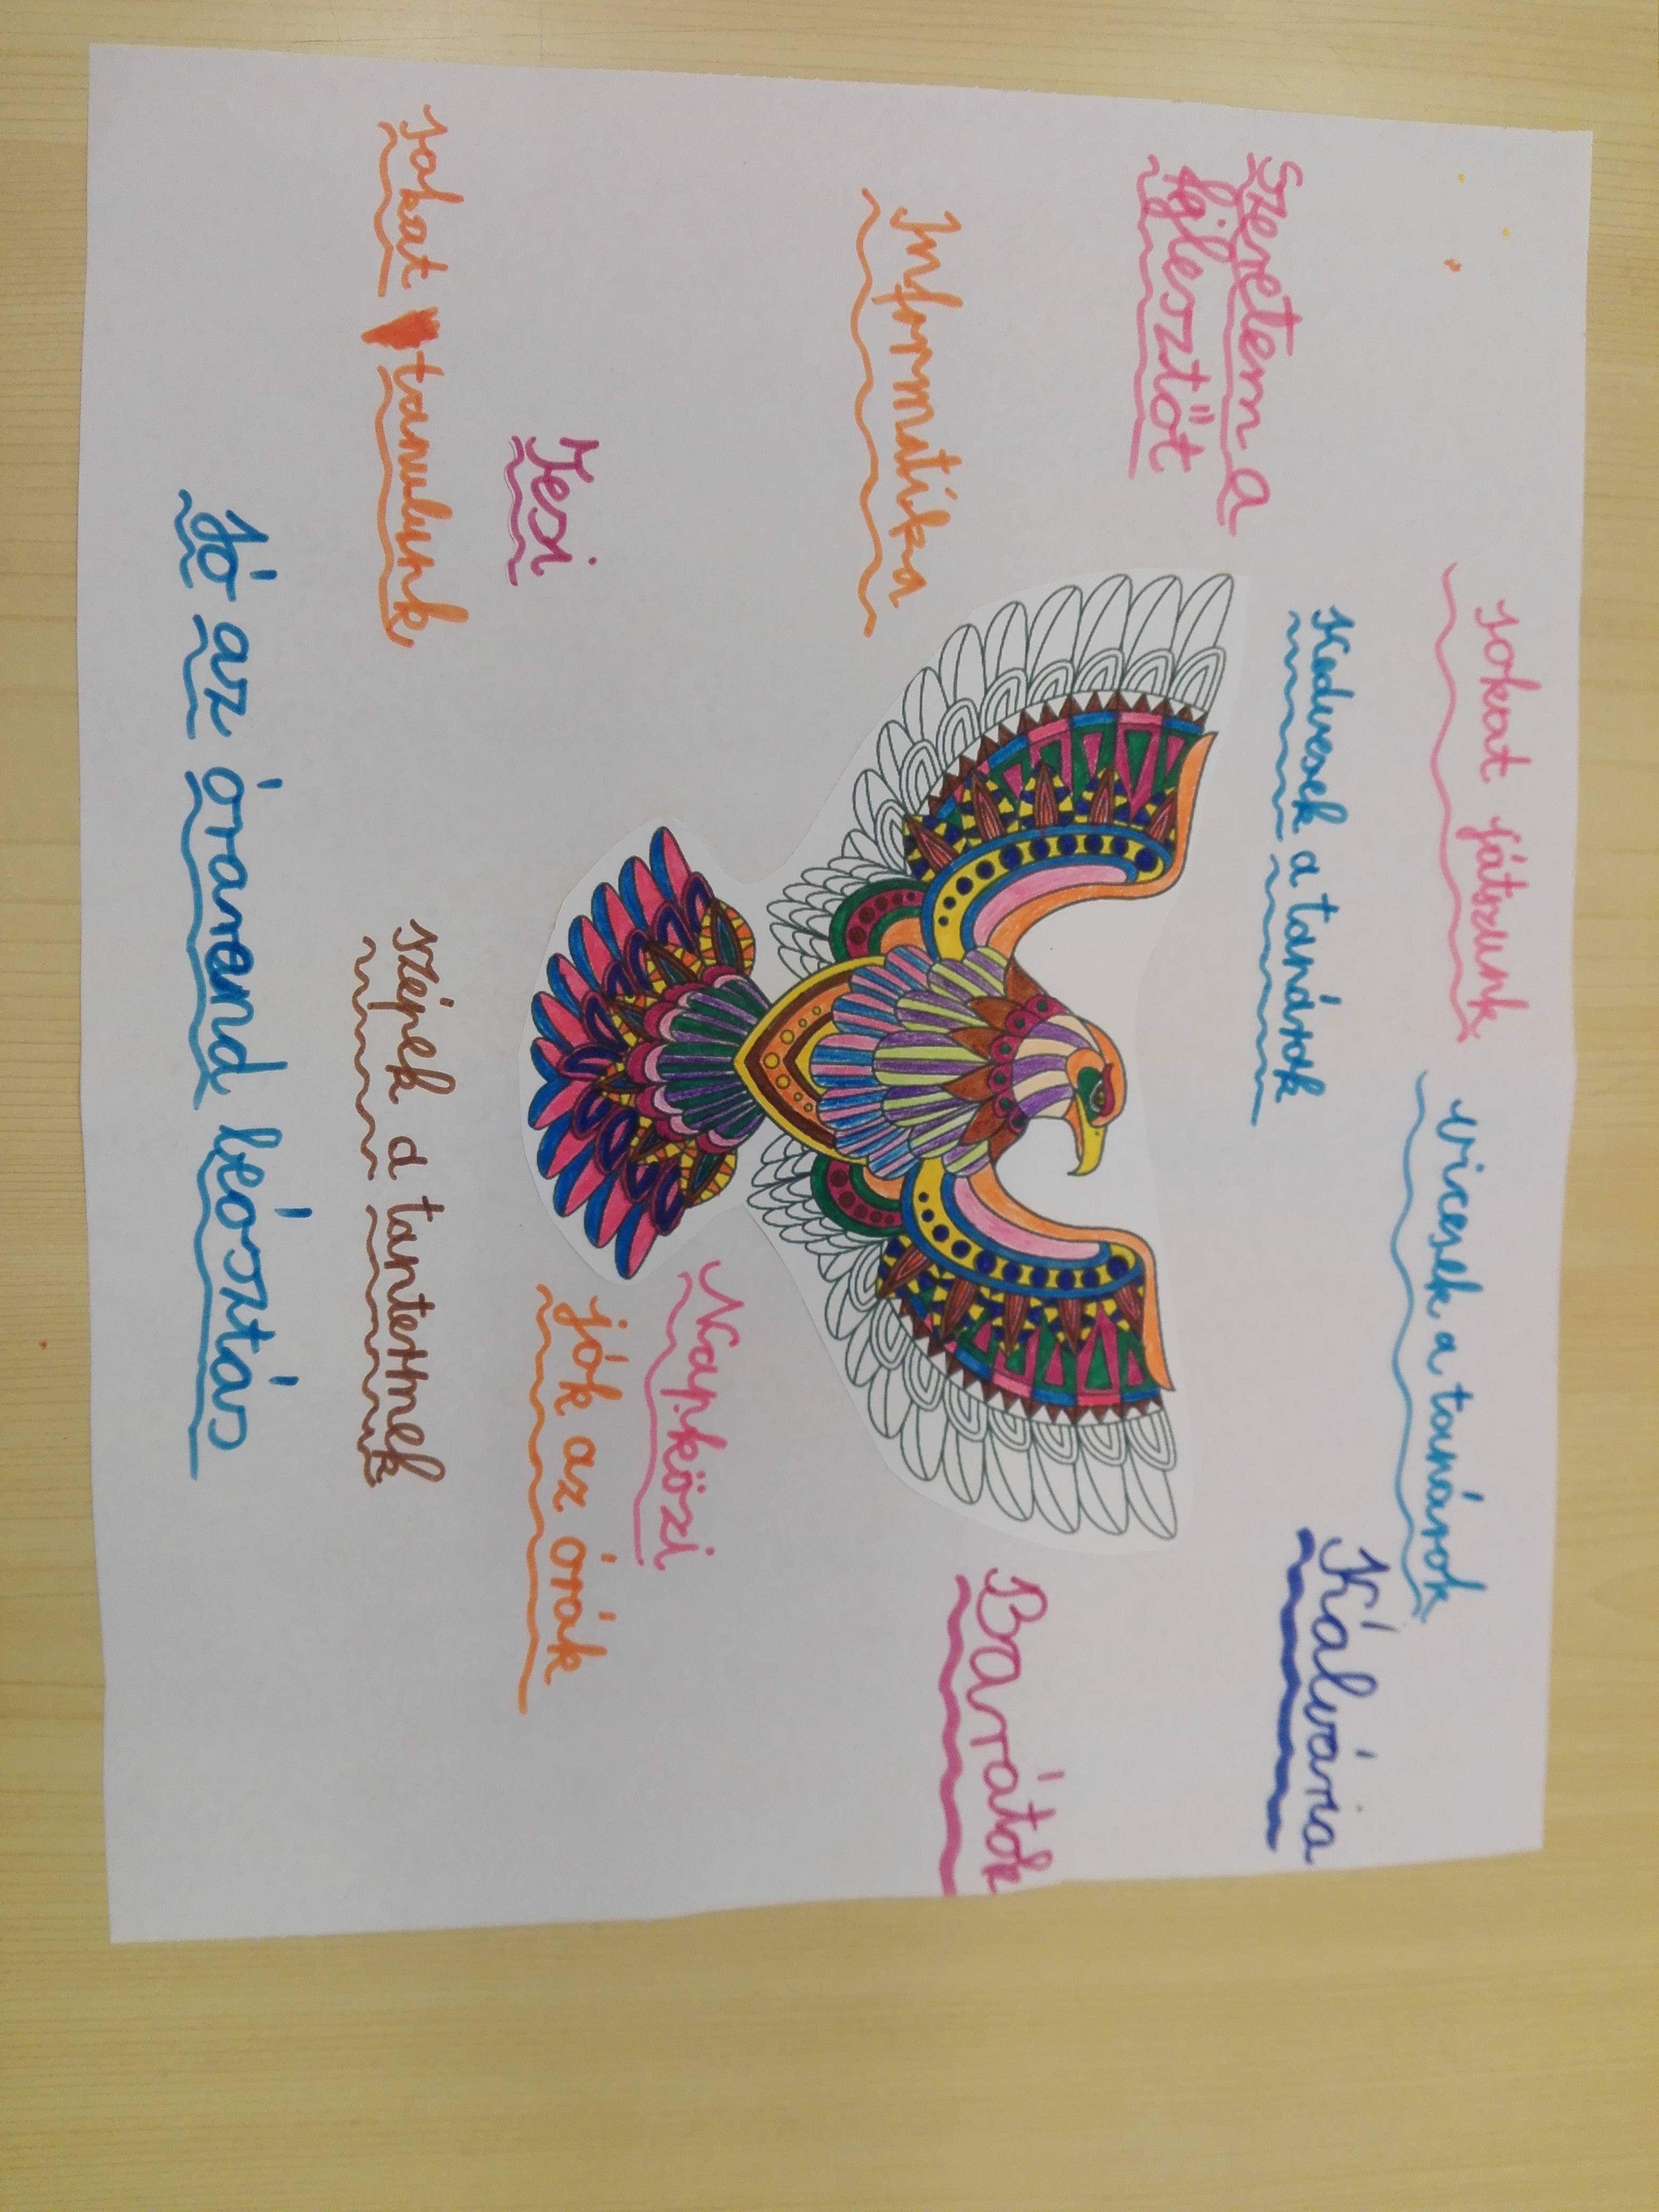 sokat játszunk
vicesek a tanárok
Szeretem a
fejlesztőt
Kedvesek a tanárok
Kálvária
Informatika
Barátok
Tesi
Napközi
jók az órák
sokat tanulunk
szépek a tantermek
Jó az órarend leósztás